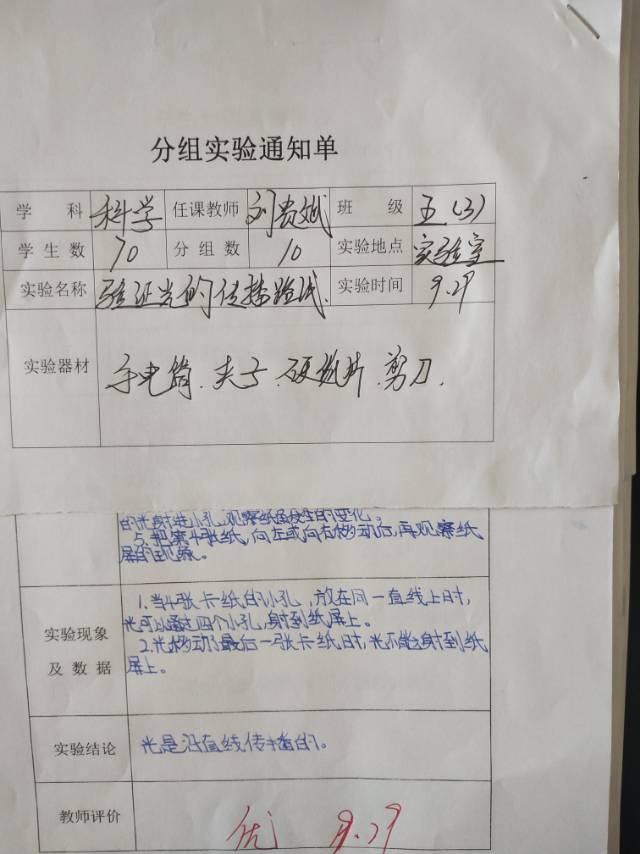 分组实验通知单
学 科 科学 任课教师 刘贵斌 班 级 五(3)
学生数 70 分组数 10 实验地点 实验室
实验名称 验证光的传播路线. 实验时间 9.29
实验器材 手电筒.夹子.硬纸片.剪刀.
的光射进小孔,观察纸屏发生的变化。
5.把第4张纸,向左或向右移动后,再观察纸
屏的现象。
实验现象
及数据
1.当4张卡纸的小孔,放在同一直线上时,
光可以通过四个小孔,射到纸屏上。
2.光移动了最后一张卡纸时,光不能射到纸
屏上。
实验结论 光是沿直线传播的。
教师评价 优 9.29